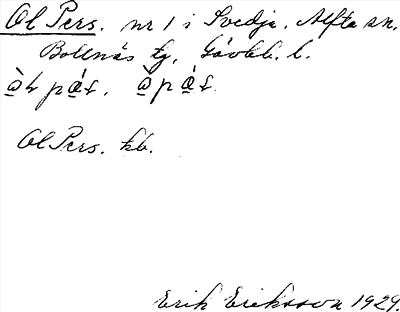 Ol Pers. nr 1 i Svedja. Alfta sn.
Bollnäs tg. Gävleb. l.
Ol Pers. kb.
Erik Eriksson 1929.